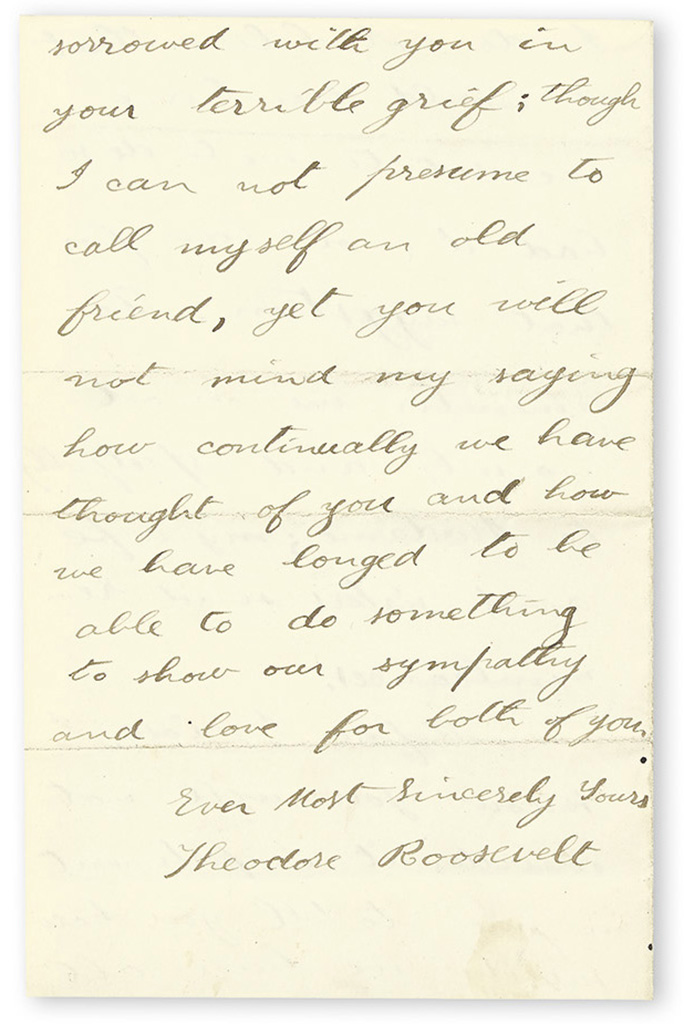 sorrowed with you in
your terrible grief; though
I can not presume to
call myself an old
friend, yet you will
not mind my saying
how continually we have
thought of you and how
we have longed to be
able to do something
to show our sympathy
and love for both of you.
Ever Most Sincerely Yours
Theodore Roosevelt